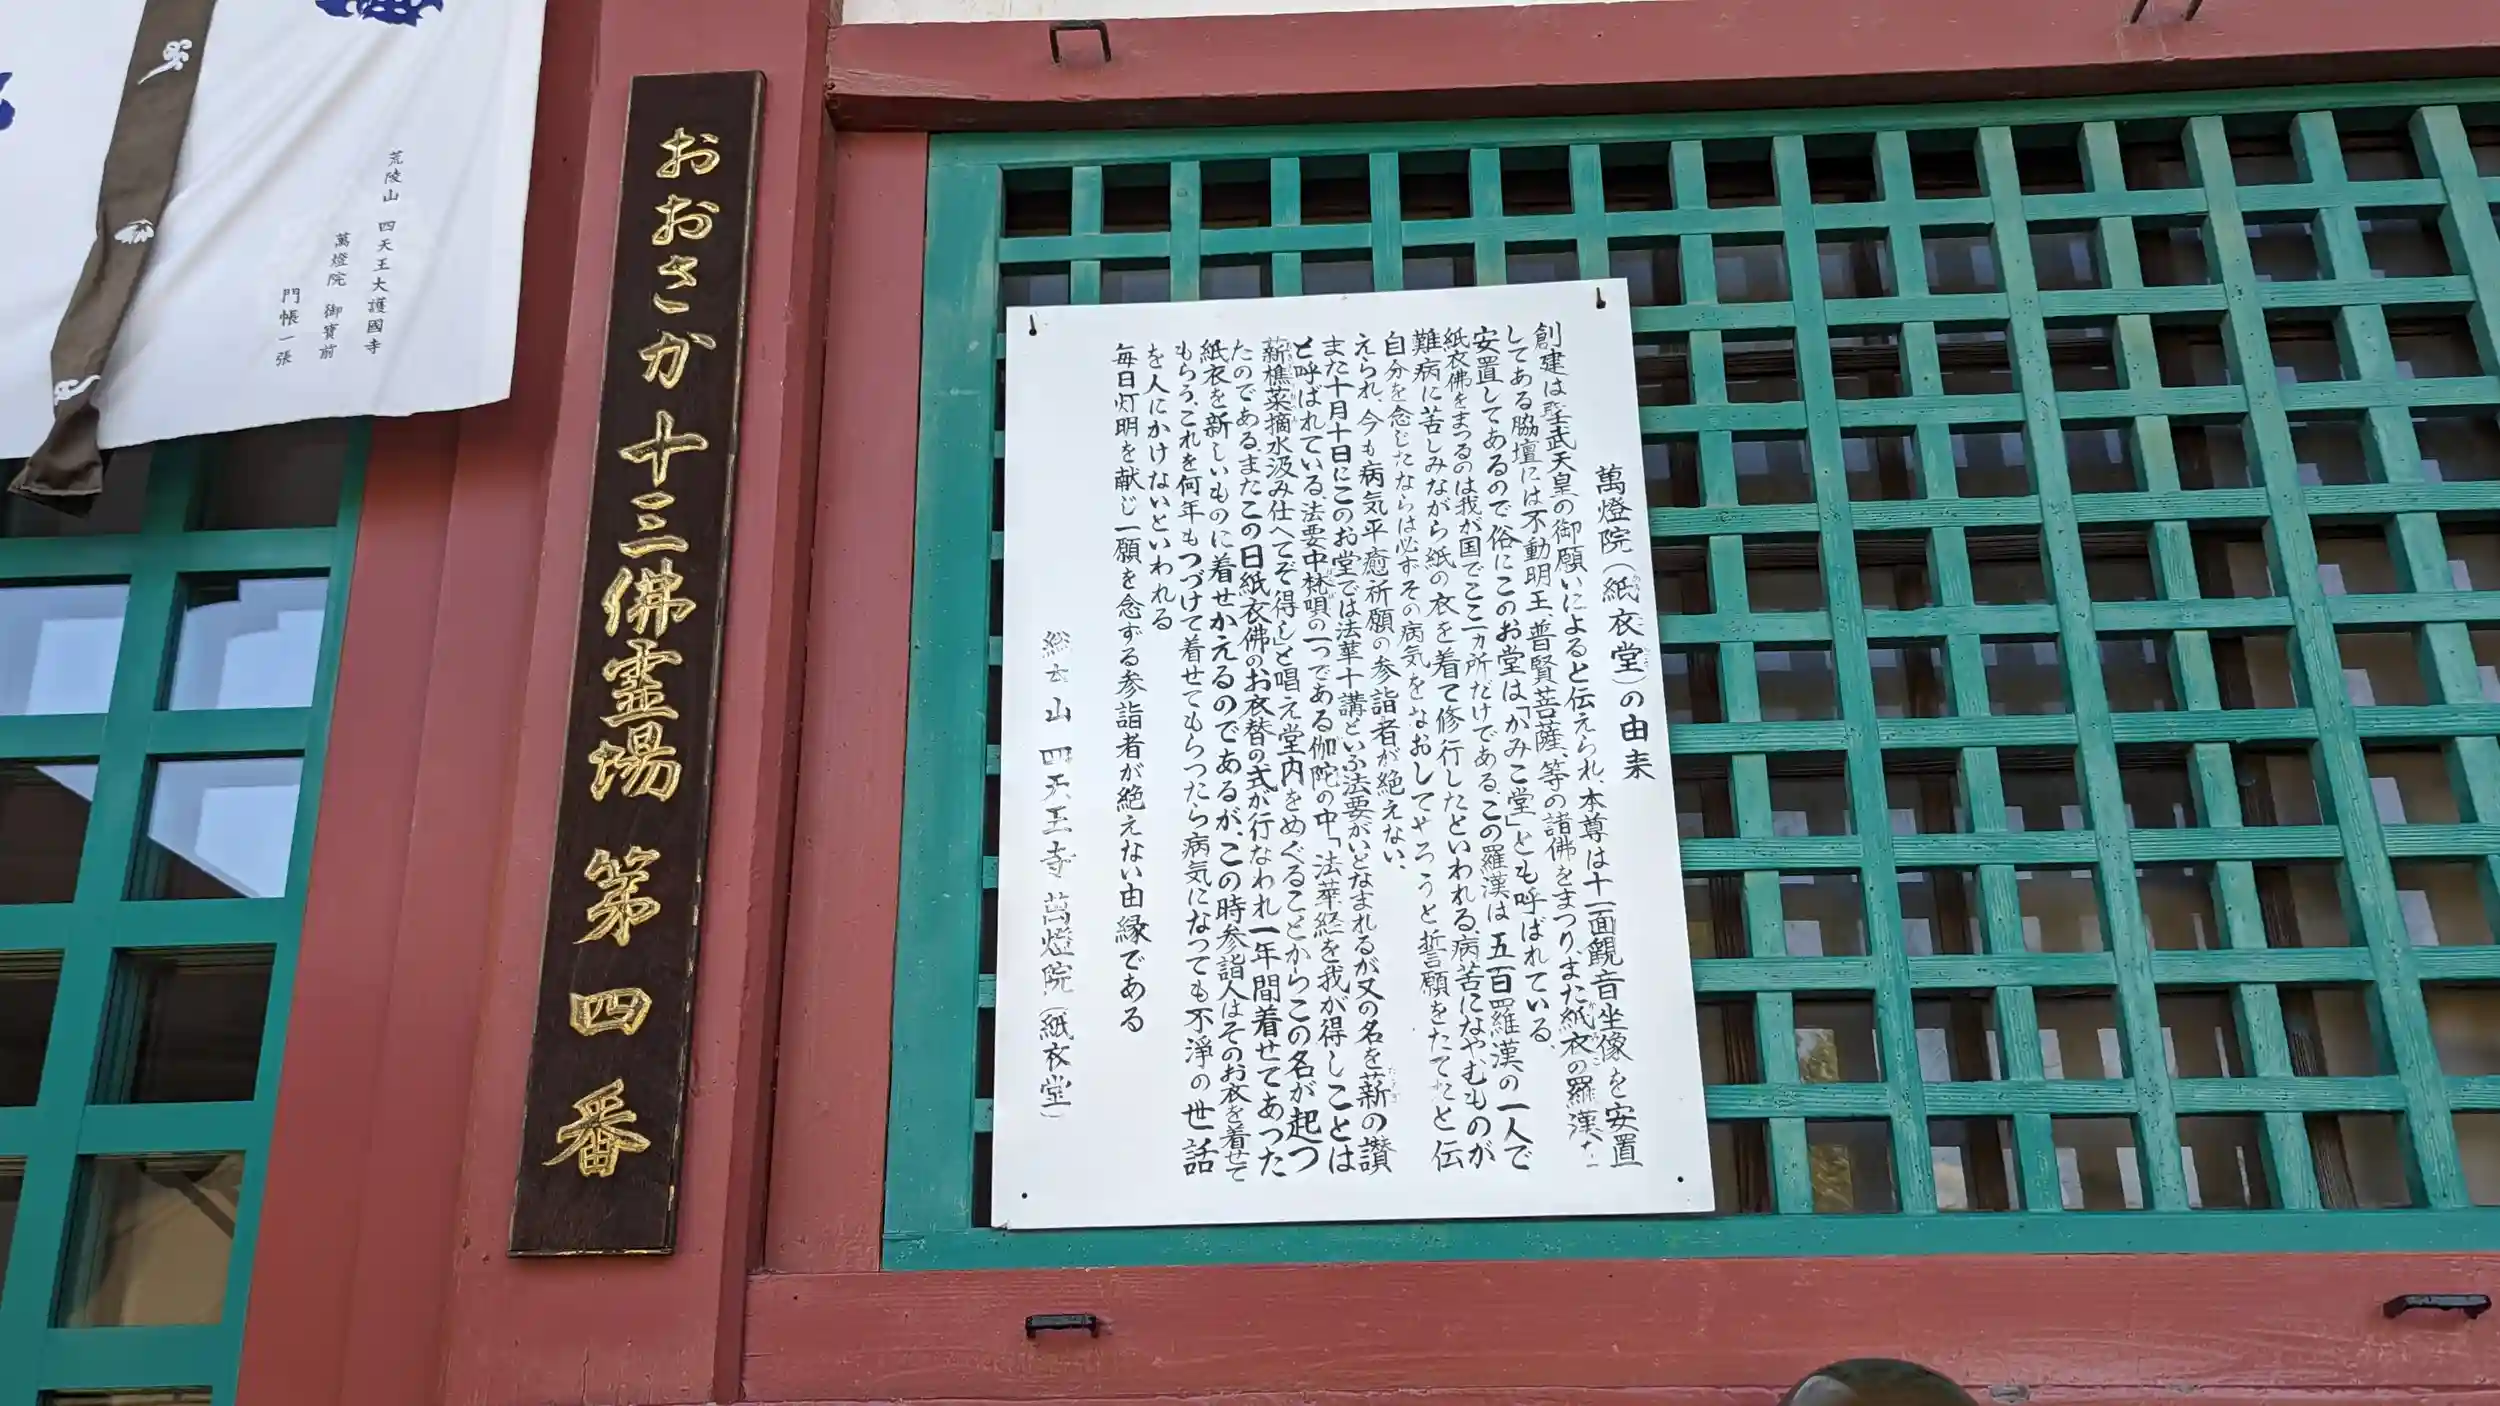 荒陵山 四天王大護國寺
萬燈院 御寳前
門帳一張
おおさか十三佛霊場 第四番
萬燈院(紙衣堂)の由来
創建は聖武天皇の御願いによると伝えられ、本尊は十一面観音坐像を安置
してある脇壇には不動明王、普賢菩薩、等の諸佛をまつり、また紙衣の羅漢
安置してあるので俗にこのお堂は「かみこ堂」とも呼ばれている。
紙衣佛をまつるのは我が国でここ一カ所だけである。この羅漢は五百羅漢の一人で
難病に苦しみながら紙の衣を着て修行したといわれる。病苦になやむものが
自分を念じたならは必ずその病気をなおしてやろうと誓願をたてたと伝
えられ、今も病気平癒祈願の参詣者が絶えない、
また十月十日にこのお堂では法華十講といふ法要がいとなまれるが又の名を薪の讃
と呼ばれている。法要中梵唄の一つである伽陀の中「法華経を我が得しことは
薪樵菜摘水汲み仕へてぞ得し」と唱え堂内をめぐることからこの名が起つ
たのであるまたこの日紙衣佛のお衣替の式が行なわれ一年間着せてあった
紙衣を新しいものに着せかえるのであるが、この時参詣人はそのお衣を着せて
もらう、これを何年もつづけて着せてもらつたら病気になつても不浄の世話
を人にかけないといわれる
毎日灯明を献じ一願を念ずる参詣者が絶えない由縁である
総本山四天王寺 萬燈院(紙衣堂)